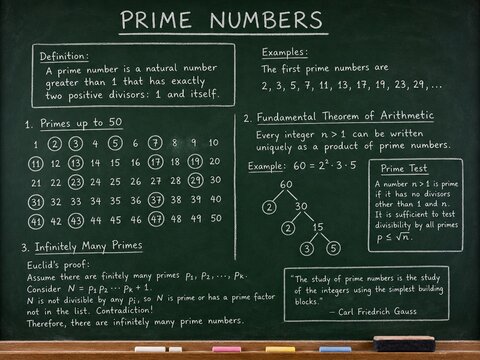 PRIME NUMBERS
Definition:
A prime number is a natural number
greater than 1 that has exactly
two positive divisors: 1 and itself.
Examples:
The first prime numbers are
2, 3, 5, 7, 11, 13, 17, 19, 23, 29, ...
1. Primes up to 50
1 2 3 4 5 6 7 8 9 10
11 12 13 14 15 16 17 18 19 20
21 22 23 24 25 26 27 28 29 30
31 32 33 34 35 36 37 38 39 40
41 42 43 44 45 46 47 48 49 50
2. Fundamental Theorem of Arithmetic
Every integer n > 1 can be written
uniquely as a product of prime numbers.
Example: 60 = 2² · 3 · 5
60
2 30
2 15
3 5
Prime Test
A number n > 1 is prime
if it has no divisors
other than 1 and n.
It is sufficient to test
divisibility by all primes
p ≤ √n.
3. Infinitely Many Primes
Euclid's proof:
Assume there are finitely many primes p₁, p₂, ..., pₖ.
Consider N = p₁p₂ ··· pₖ + 1.
N is not divisible by any pᵢ, so N is prime or has a prime factor
not in the list. Contradiction!
Therefore, there are infinitely many prime numbers.
"The study of prime numbers is the study
of the integers using the simplest building
blocks."
– Carl Friedrich Gauss